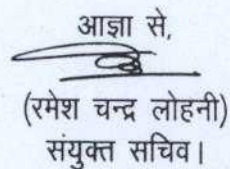 आज्ञा से,
(रमेश चन्द्र लोहनी)
संयुक्त सचिव।